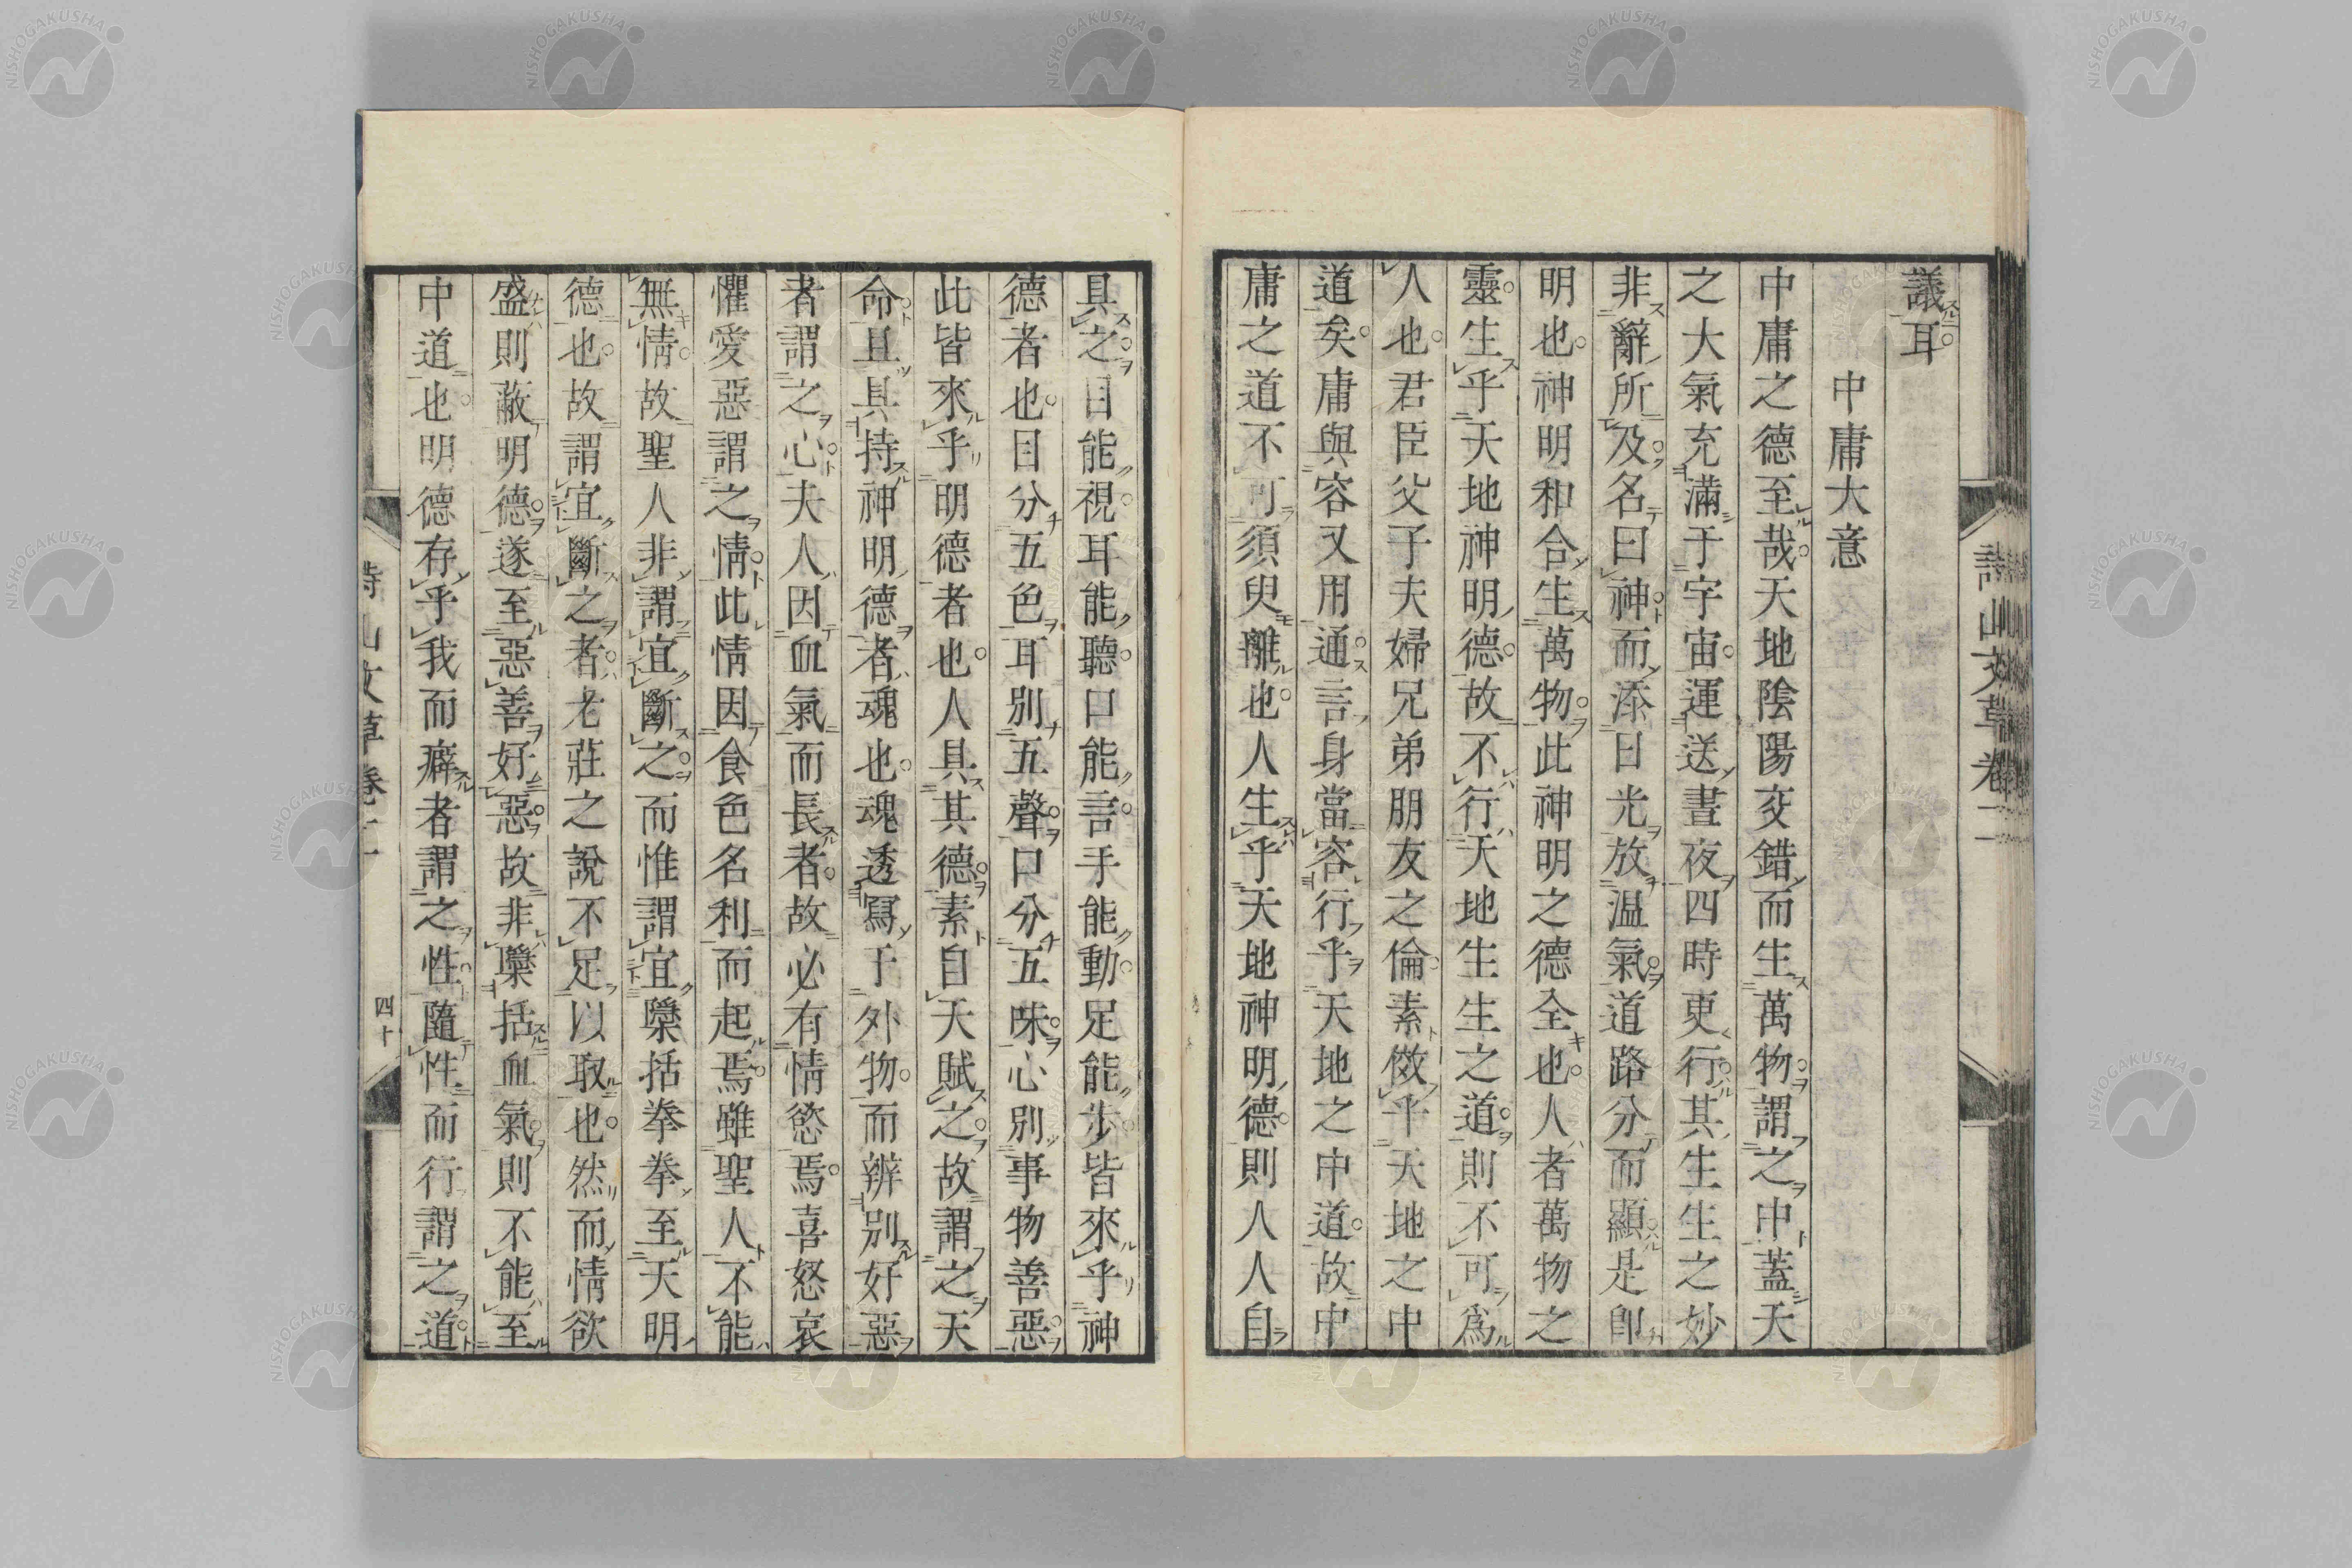 議耳
中庸大意
中庸之德至哉天地陰陽交錯而生萬物謂之中蓋天
之大氣充滿于宇宙運送晝夜四時更行其生生之妙
非辭所及名曰神而添日光放温氣道路分而顯是卽
明也神明和合生萬物此神明之德全也人者萬物之
靈生乎天地神明德故不行天地生生之道則不可爲
人也君臣父子夫婦兄弟朋友之倫素傚乎天地之中
道矣庸與容又用通言身當容行乎天地之中道故中
庸之道不可須臾離也人生乎天地神明德則人人自
具之目能視耳能聽口能言手能動足能步皆來乎神
德者也目分五色耳別五聲口分五味心別事物善惡
此皆來乎明德者也人具其德素自天賦之故謂之天
命且具持神明德者魂也魂透寫于外物而辨別好惡
者謂之心夫人因血氣而長者故必有情慾焉喜怒哀
懼愛惡謂之情此情因食色名利而起焉雖聖人不能
無情故聖人非謂宜斷之而惟謂宜檃括拳拳至天明
德也故謂宜斷之者老莊之說不足以取也然而情欲
盛則蔽明德遂至惡善好惡故非檃括血氣則不能至
中道也明德存乎我而癖者謂之性隨性而行謂之道
詩山文草卷二
詩山文草卷二
四十
NISHOGAKUSHA